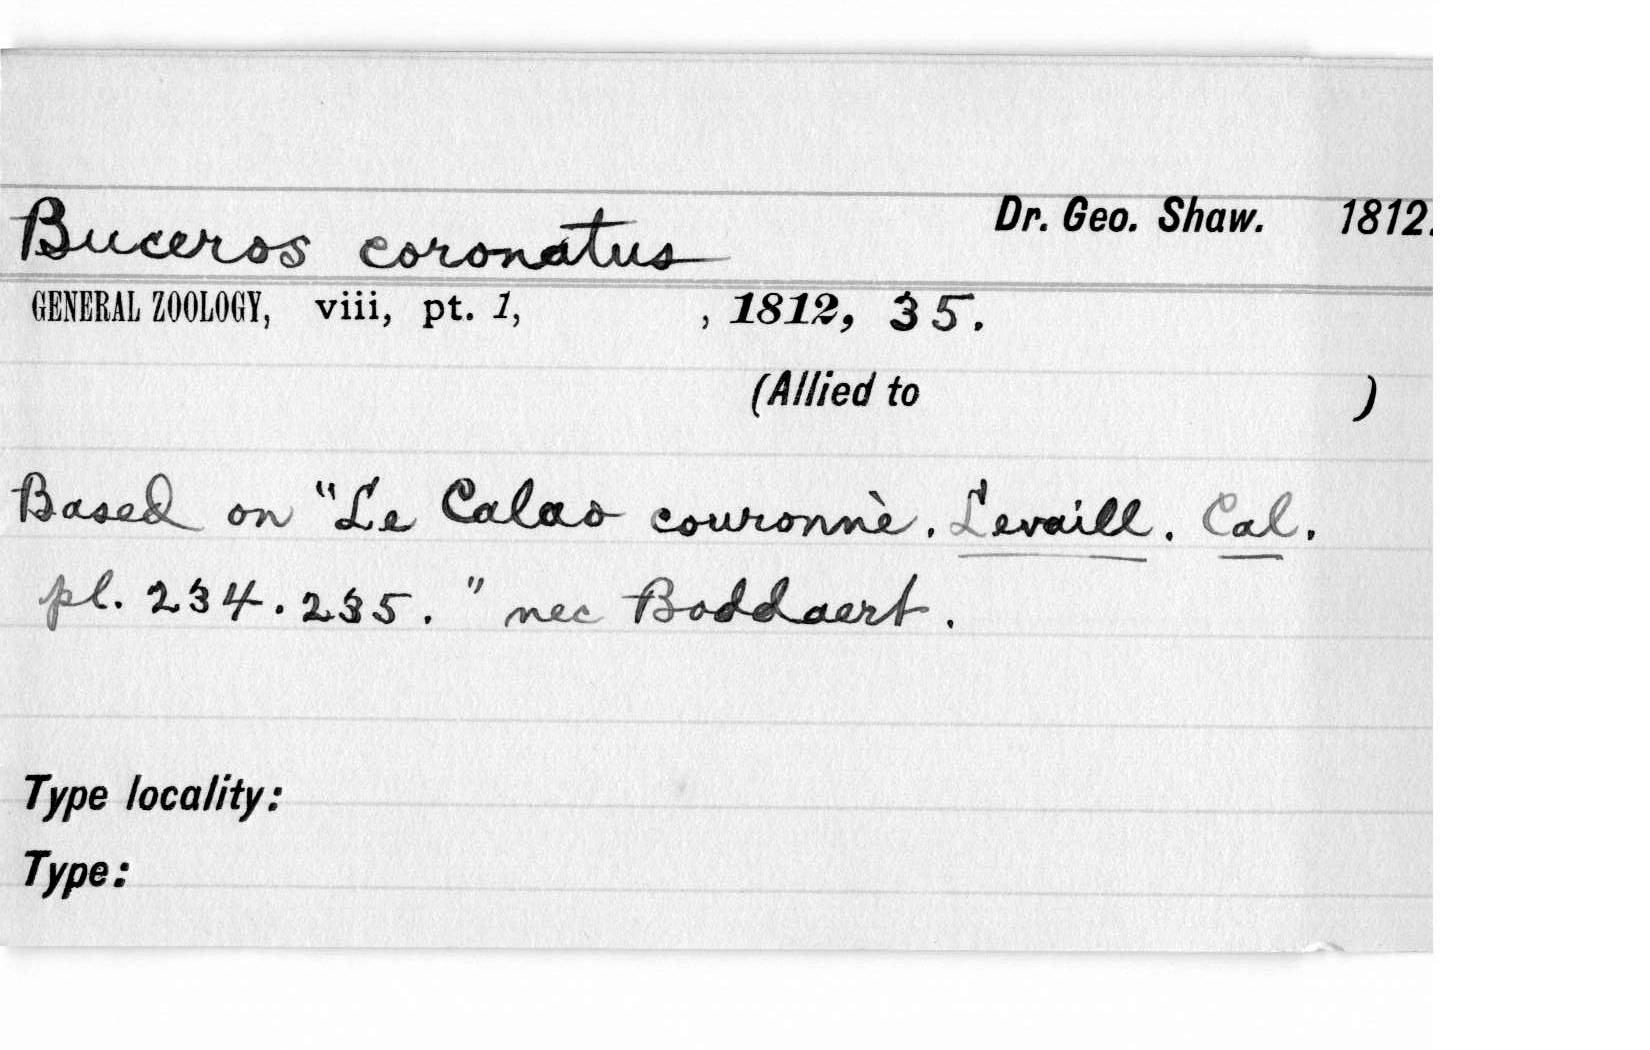 Buceros coronatus Dr. Geo. Shaw. 1812.
GENERAL ZOOLOGY, viii, pt. 1, , 1812, 35.
(Allied to )
Based on "Le Calao couronnè. Levaill. Cal.
pl. 234. 235. " nec Boddaert.
Type locality:
Type: